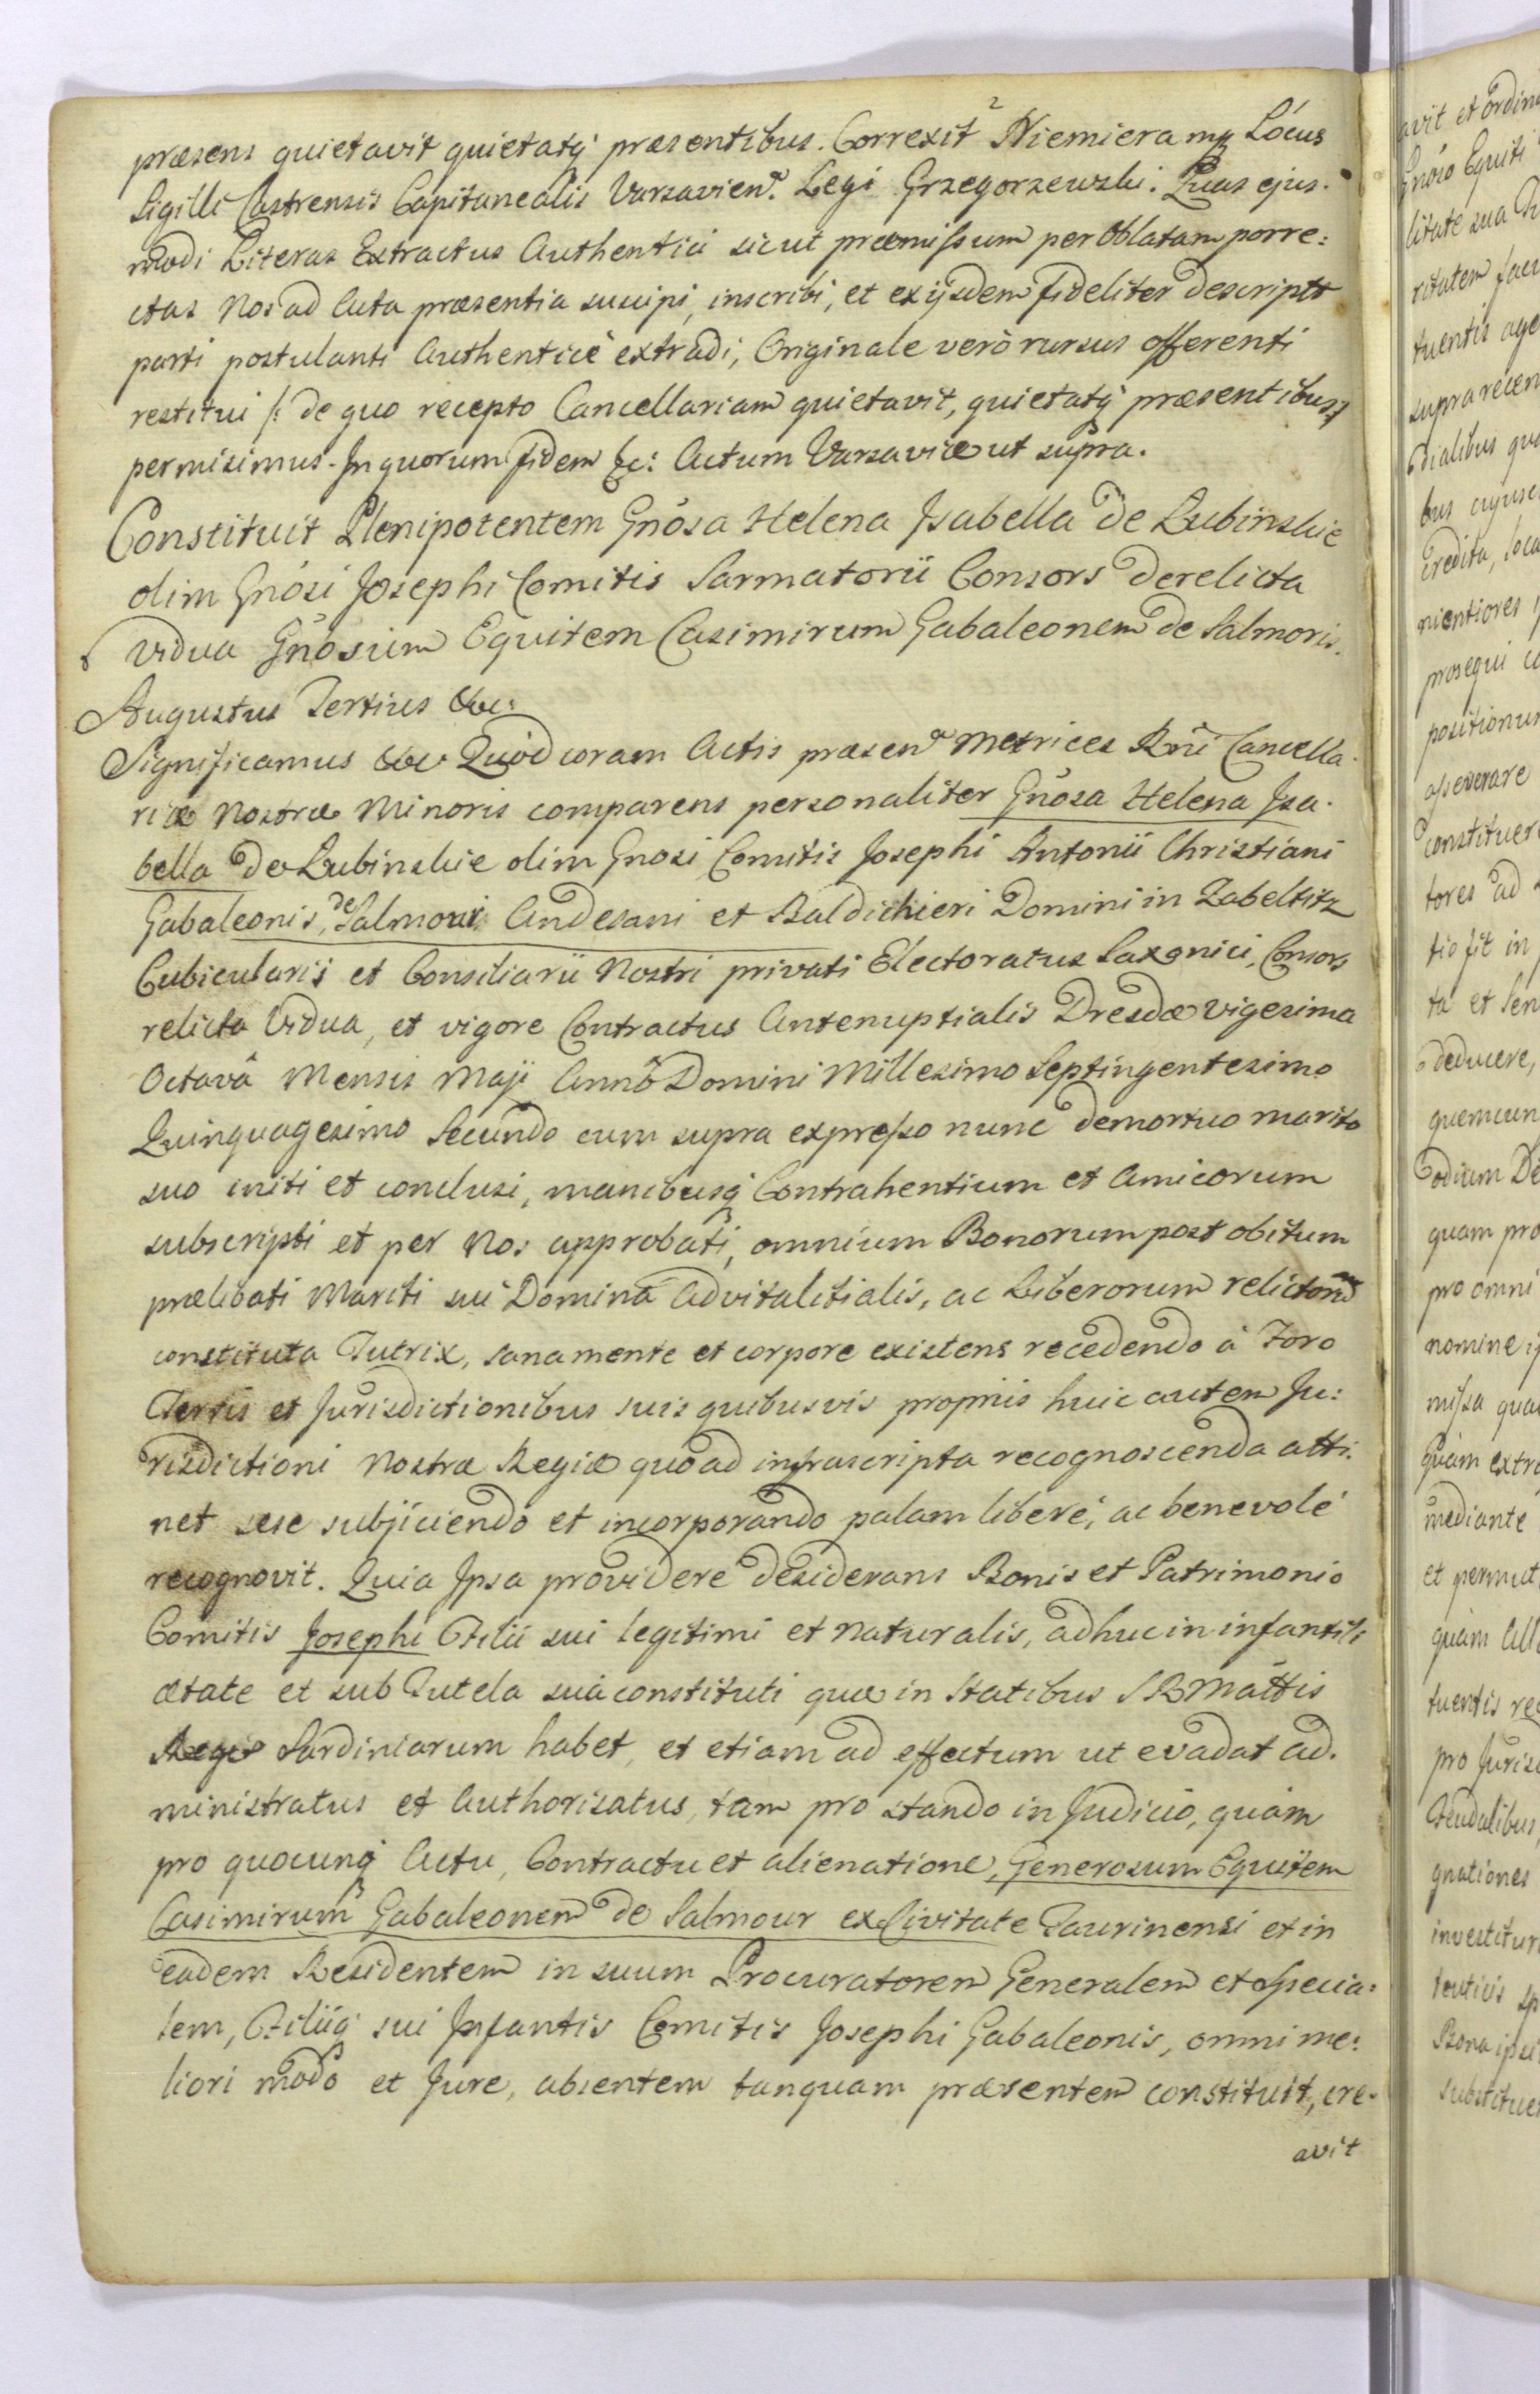 præsens quietavit quietatq̃ præsentibus. Correxit Niemiera mp Locus
Sigilli Castrensis Capitanealis Varsavien. Legi Grzegorzewski. Quas ejus-
modi Literas Extractus Authentici sicut præmissum per Oblatam porre:
ctas Nos ad Acta præsentia suscipi, inscribi, et ex ijsdem fideliter descripto
parti postulanti Authenticè extradi, Originale verò rursus offerenti
restitui /: de quo recepto Cancellariam quietavit, quietatq̃ præsentibus :/
permisimus. In quorum fidem &c: Actum Varsaviæ ut supra.
Constituit Plenipotentem Gnõsa Helena Isabella de Lubinskie
olim Gnõsi Josephi Comitis Sarmatorii Consors derelicta
Vidua Gnõsum Equitem Casimirum Gabaleonem de Salmoris.
Augustus Tertius &c:
Significamus &c Quod coram Actis præsen Metrices Rñi Cancella-
riæ Nostræ Minoris comparens personaliter Gnõsa Helena Isa-
bella de Lubinskie olim Gnosi Comitis Josephi Antonii Christiani
Gabaleonis, de Salmour Andesani et Baldichieri Domini in Zabeltitz
Cubicularis et Consiliarii Nostri privati Electoratus Saxonici, Consors
relicta Vidua, et vigore Contractus Antenuptialis Dresdæ vigesima
Octavâ Mensis Maji Annô Domini Millesimo Septingentesimo
Quinquagesimo Secundo cum supra expresso nunc demortuo marito
suo initi et conclusi, manibusq̃ Contrahentium et Amicorum
subscripti et per Nos approbati, omnium Bonorum post obitum
prælibati Mariti sui Domina Advitalitialis, ac Liberorum relictorum
constituta Tutrix, sana mente et corpore existens recedendo à Foro
Terris et Jurisdictionibus suis quibusvis propriis huic autem Ju:
risdictioni Nostræ Regiæ quo ad infrascripta recognoscenda atti-
net sese subjiciendo et incorporando palam liberè, ac benevolè
recognovit. Quia Ipsa providere desiderans Bonis et Patrimonio
Comitis Josephi Filii sui legitimi et naturalis, adhuc in infantili
ætate et sub Tutela suâ constituti quæ in Statibus S R Mattis
Regis Sardiniarum habet, et etiam ad effectum ut evadat ad-
ministratus et Authorisatus, tam pro stando in Judicio, quàm
pro quocunq̃ Actu, Contractu et alienatione, Generosum Equitem
Casimirum Gabaleonem de Salmour ex Civitate Taurinensi et in
eadem Residentem in suum Procuratorem Generalem et Specia:
lem, Filiiq̃ sui Infantis Comitis Josephi Gabaleonis, omni me:
liori modo et Jure, absentem tanquam præsentem constituit, cre-
avit
avit et ordin
Gnõso Equiti
litate sua
ritatem fac
tuentis age
supra recen
dialibus qu
bus cujusc
credita, loca
nientiores
prosequi
positionum
asseverare
constituer
tores ad
tio fit in
ta et Sen
deducere,
quemcun
odium De
quam pro
pro omni
nomine
missa qua
quam extr
mediante
et permut
quàm All
tuentis re
pro Juris
Feudalibus
gnationes
investitur
tenticis sp
Bona ipsi
substitue